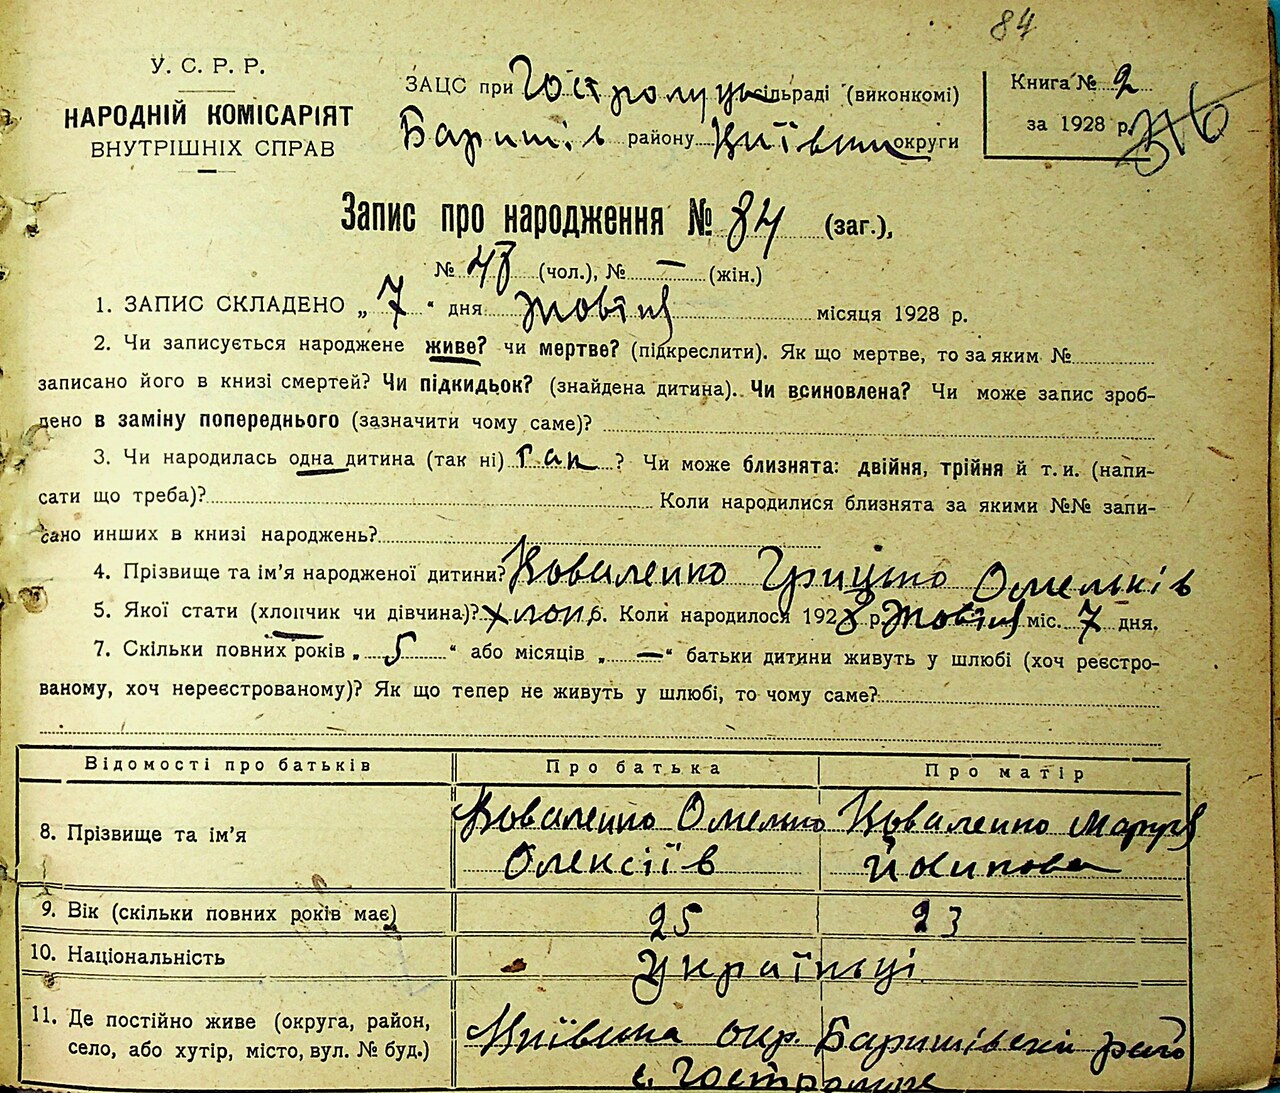 84
У. С. Р. Р.
НАРОДНІЙ КОМІСАРІЯТ
ВНУТРІШНІХ СПРАВ
ЗАЦС при Гостролуцьк сільраді (виконкомі)
Баришів району Київськ округи
Книга № 2
за 1928 р.
376
Запис про народження № 84 (заг.),
№ 48 (чол.), № — (жін.)
1. ЗАПИС СКЛАДЕНО „ 7 “ дня Жовтня місяця 1928 р.
2. Чи записується народжене живе? чи мертве? (підкреслити). Як що мертве, то за яким №
записано його в книзі смертей? Чи підкидьок? (знайдена дитина). Чи всиновлена? Чи може запис зроб-
лено в заміну попереднього (зазначити чому саме)?
3. Чи народилась одна дитина (так ні) так ? Чи може близнята: двійня, трійня й т. и. (напи-
сати що треба)? Коли народилися близнята за якими №№ запи-
сано инших в книзі народжень?
4. Прізвище та ім’я народженої дитини? Коваленко Грицько Омельків
5. Якої стати (хлопчик чи дівчина)? хлоп. 6. Коли народилося 1928 р. Жовтня міс. 7 дня.
7. Скільки повних років „ 5 “ або місяців „ — “ батьки дитини живуть у шлюбі (хоч реєстро-
ваному, хоч нереєстрованому)? Як що тепер не живуть у шлюбі, то чому саме?
Відомості про батьків Про батька Про матір
8. Прізвище та ім’я Коваленко Омелько Олексіїв Коваленко Маруся Йосипова
9. Вік (скільки повних років має) 25 23
10. Національність Українці
11. Де постійно живе (округа, район,
село, або хутір, місто, вул. № буд.) Київська окр. Баришівськи район
с. Гостролуччя